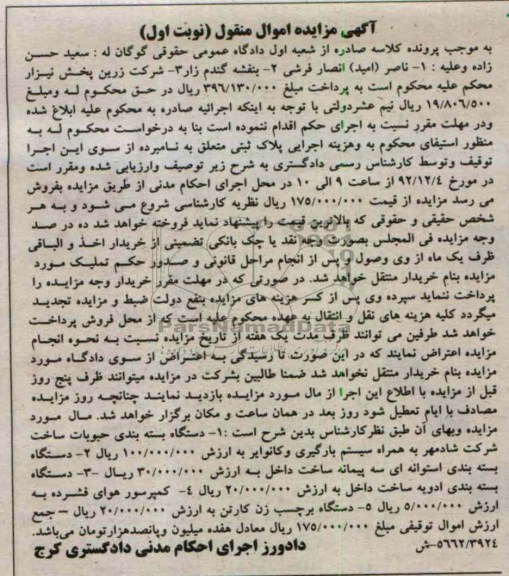 آگهی مزایده اموال منقول (نوبت اول)
به موجب پرونده کلاسه صادره از شعبه اول دادگاه عمومی حقوقی گوگان له : سعید حسن
زاده وعلیه : ۱- ناصر (امید) انصار فرشی ۲- بنفشه گندم زار۳- شرکت زرین پخش نیزار
محکم علیه محکوم است به پرداخت مبلغ ۳۹۶/۱۳۰/۰۰۰ ریال در حق محکوم له ومبلغ
۱۹/۸۰۶/۵۰۰ ریال نیم عشردولتی با توجه به اینکه اجرائیه صادره به محکوم علیه ابلاغ شده
ودر مهلت مقرر نسبت به اجرای حکم اقدام ننموده است بنا به درخواست محکوم له به
منظور استیفای محکوم به وهزینه اجرایی پلاک ثبتی متعلق به نامبرده از سوی این اجرا
توقیف وتوسط کارشناس رسمی دادگستری به شرح زیر توصیف وارزیابی شده ومقرر است
در مورخ ۹۲/۱۲/۴ از ساعت ۹ الی ۱۰ در محل اجرای احکام مدنی از طریق مزایده بفروش
می رسد مزایده از قیمت ۱۷۵/۰۰۰/۰۰۰ ریال نظریه کارشناسی شروع می شود و به هر
شخص حقیقی و حقوقی که بالاترین قیمت را پیشنهاد نماید فروخته خواهد شد ده در صد
وجه مزایده فی المجلس بصورت وجه نقد یا چک بانکی تضمینی از خریدار اخذ و الباقی
ظرف یک ماه از وی وصول و پس از انجام مراحل قانونی و صدور حکم تملیک مورد
مزایده بنام خریدار منتقل خواهد شد. در صورتی که در مهلت مقرر خریدار وجه مزایده را
پرداخت ننماید سپرده وی پس از کسر هزینه های مزایده بنفع دولت ضبط و مزایده تجدید
میگردد کلیه هزینه های نقل و انتقال به عهده محکوم علیه است که از محل فروش پرداخت
خواهد شد طرفین می توانند ظرف مدت یک هفته از تاریخ مزایده نسبت به نحوه انجام
مزایده اعتراض نمایند که در این صورت تا رسیدگی به اعتراض از سوی دادگاه مورد
مزایده بنام خریدار منتقل نخواهد شد ضمنا طالبین بشرکت در مزایده میتوانند ظرف پنج روز
قبل از مزایده با اطلاع این اجرا از مال مورد مزایده بازدید نمایند چنانچه روز مزایده
مصادف با ایام تعطیل شود روز بعد در همان ساعت و مکان برگزار خواهد شد. مال مورد
مزایده وبهای آن طبق نظرکارشناس بدین شرح است :۱- دستگاه بسته بندی حبوبات ساخت
شرکت شادمهر به همراه سیستم بارگیری وکانوایر به ارزش ۱۰۰/۰۰۰/۰۰۰ ریال ۲- دستگاه
بسته بندی استوانه ای سه پیمانه ساخت داخل به ارزش ۳۰/۰۰۰/۰۰۰ ریال -۳- دستگاه
بسته بندی ادویه ساخت داخل به ارزش ۲۰/۰۰۰/۰۰۰ ریال ۴- کمپرسور هوای فشرده به
ارزش ۵/۰۰۰/۰۰۰ ریال ۵- دستگاه برچسب زن کارتن به ارزش ۲۰/۰۰۰/۰۰۰ ریال – جمع
ارزش اموال توقیفی مبلغ ۱۷۵/۰۰۰/۰۰۰ ریال معادل هفده میلیون وپانصدهزارتومان می‌باشد.
۵۶۶۲/۳۹۲۴-ش دادورز اجرای احکام مدنی دادگستری کرج
ParsNamadData